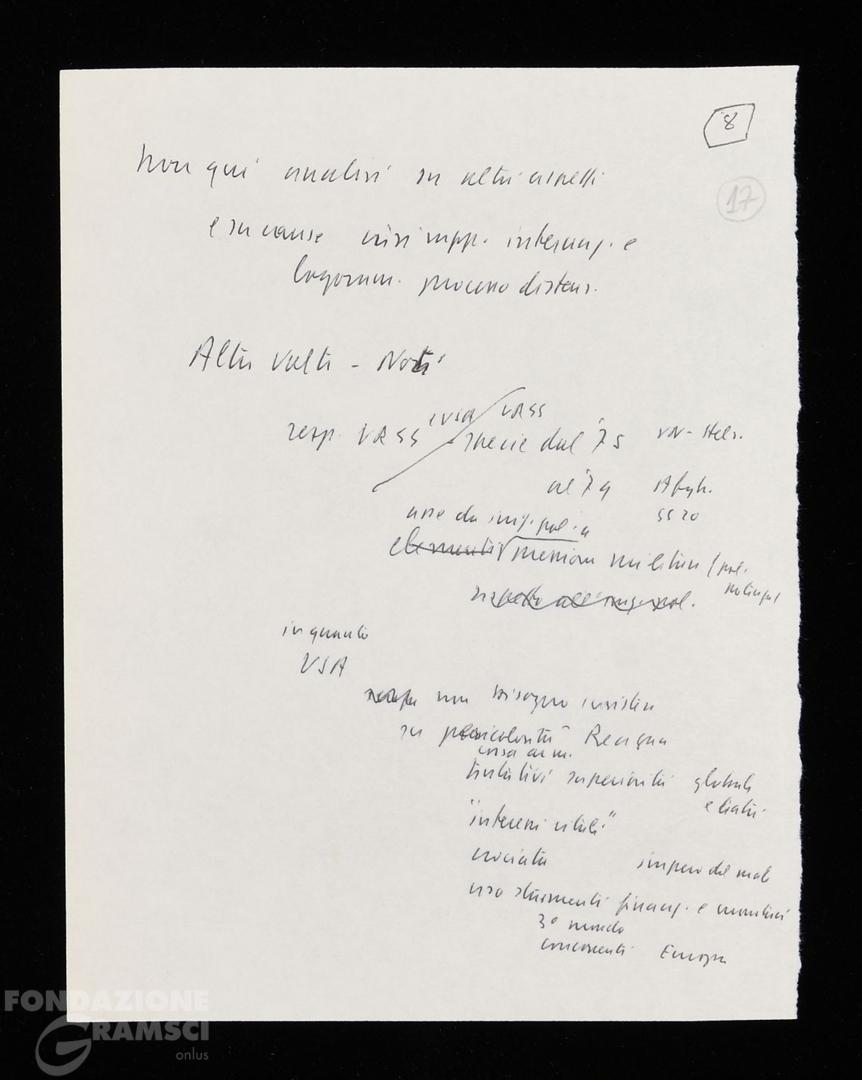 8
17
Non qui analisi su altri aspetti
e su cause crisi rapp. internaz. e
logoram. processo distens.
Altre volte - Noti
USA URSS
resp. URSS specie dal '75 VN - Hels.
al '79 Afgh.
SS20
asse da imp. pol. a
elementi pressione militare / pol.
rispetto all'imp. pol.
in quanto
USA
non bisogno insistere
su pericolosità Reagan
corsa arm.
tentativi superiorità globale
"interessi vitali"
crociata impero del male
uso strumenti finanz. e monetari
3° mondo
concorrenti Europa
FONDAZIONE
GRAMSCI
onlus